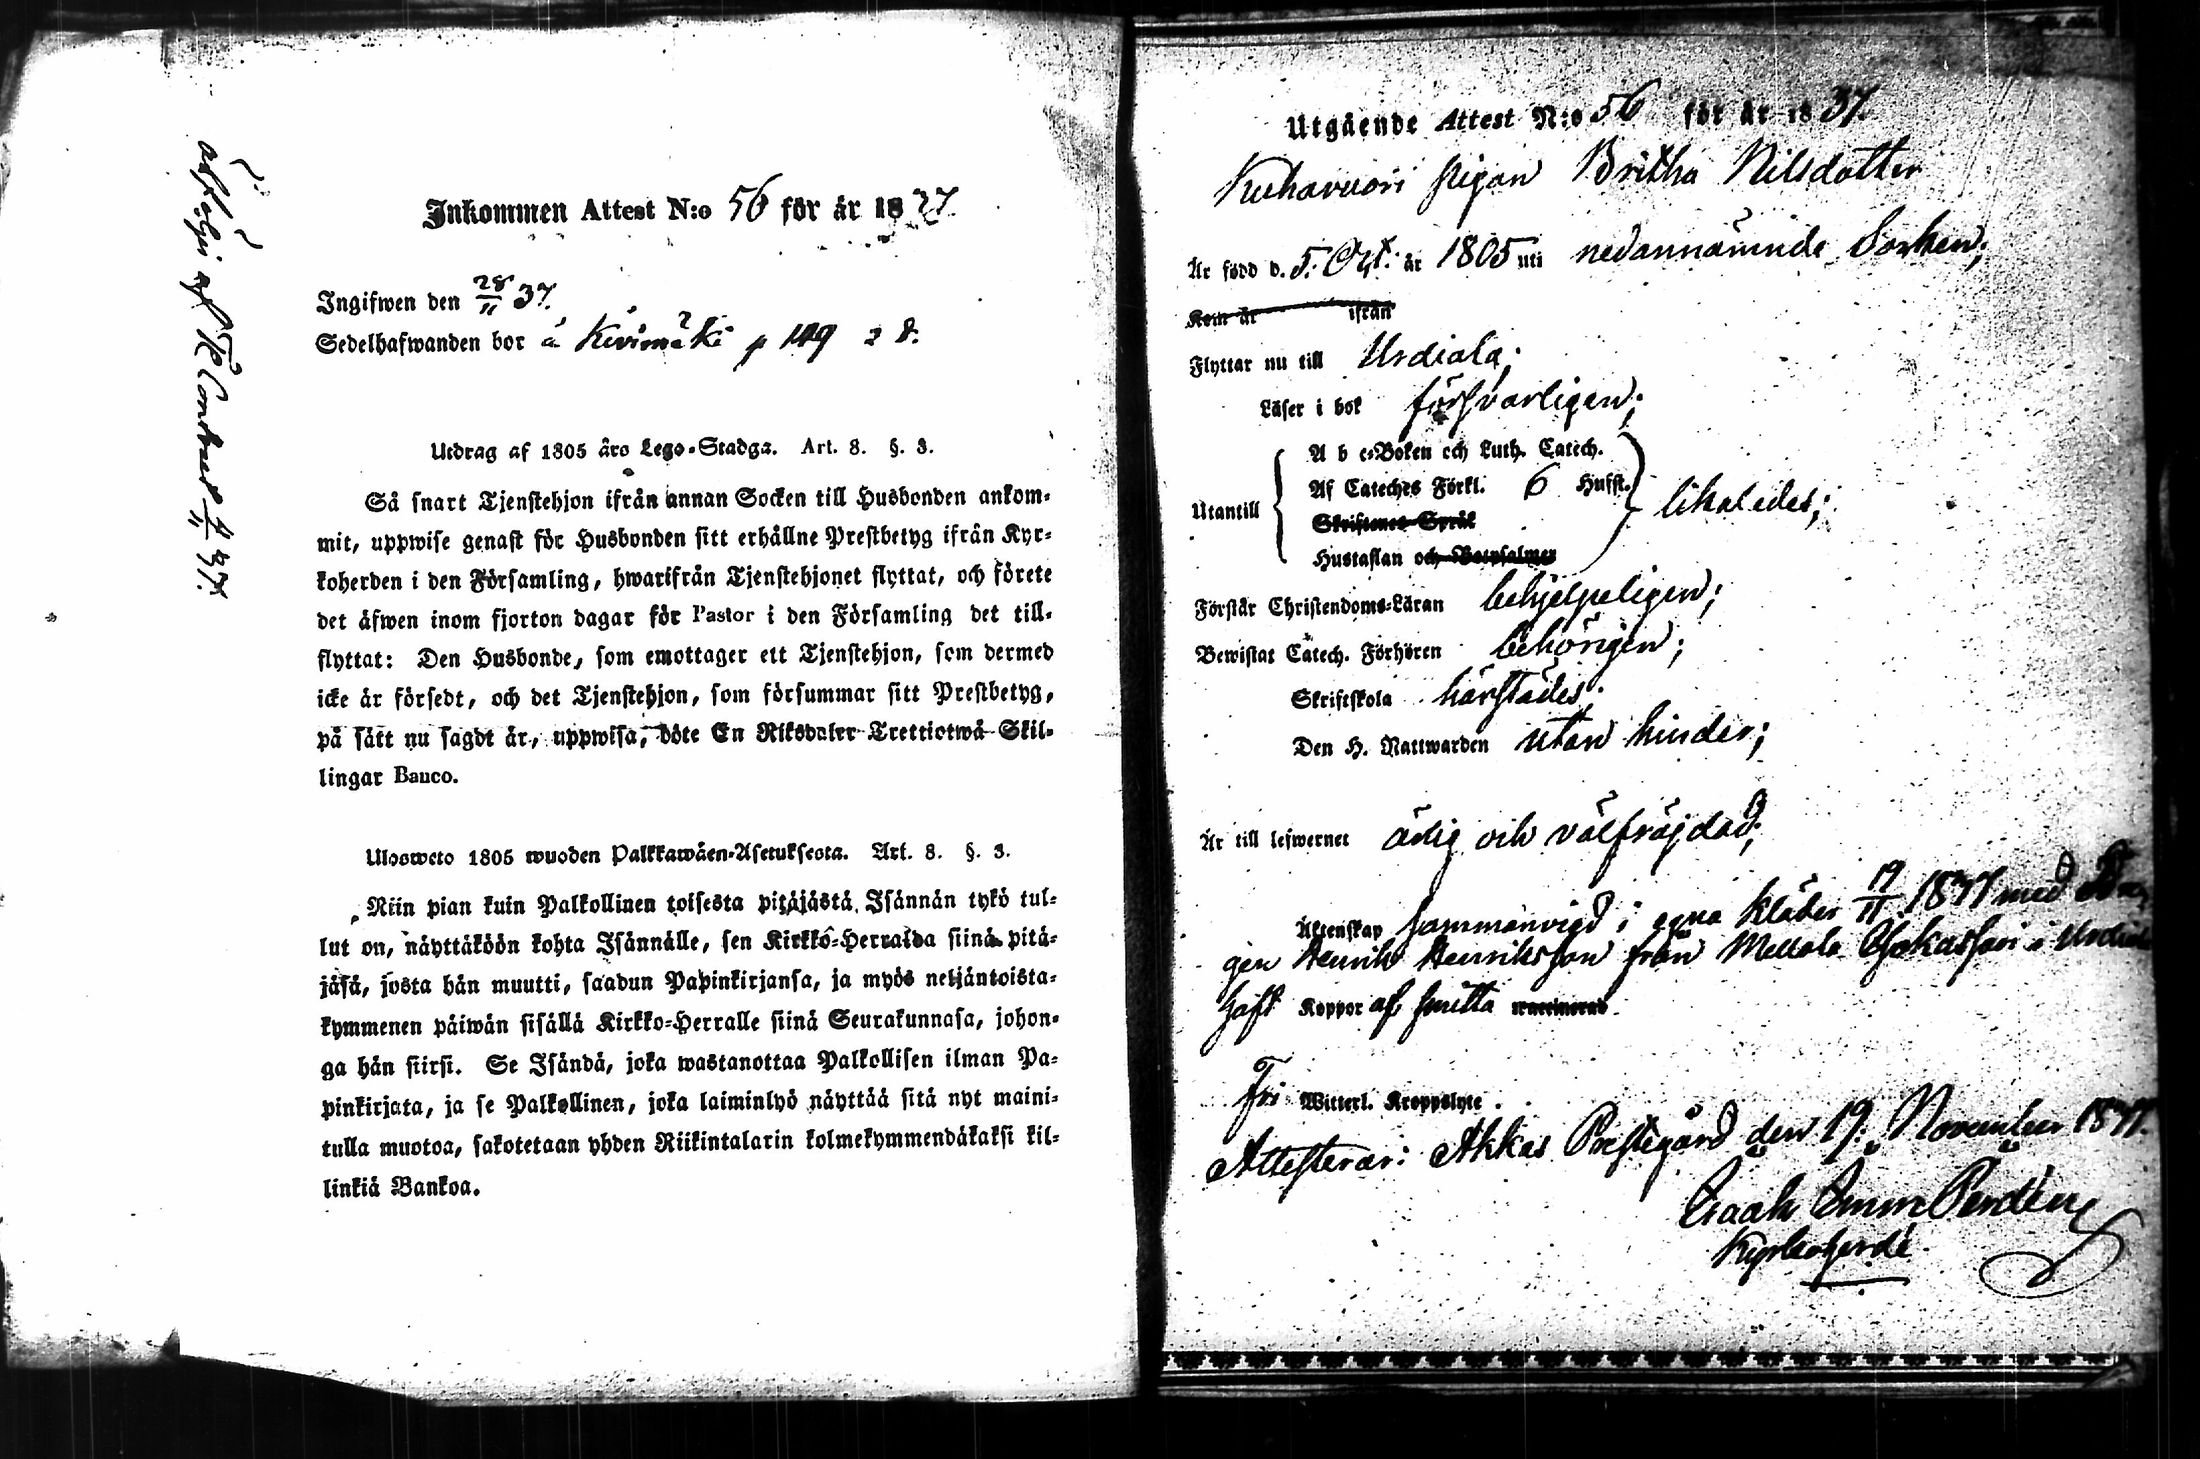 Inkommen Attest N:o 56 för år 1837.
Ingifwen den 28/11 37.
Sedelhafwanden bor å Kivimäki p 149 2 d.
Utdrag af 1805 års Lego-Stadga. Art. 8. §. 3.
Så snart Tjenstehjon ifrån annan Socken till Husbonden ankom-
mit, uppwise genast för Husbonden sitt erhållne Prestbetyg ifrån Kyr-
koherden i den Församling, hwarifrån Tjenstehjonet flyttat, och förete
det äfwen inom fjorton dagar för Pastor i den Församling det till-
flyttat: Den Husbonde, som emottager ett Tjenstehjon, som dermed
icke är försedt, och det Tjenstehjon, som försummar sitt Prestbetyg,
på sätt nu sagdt är, uppwisa, böte En Riksdaler Trettiotwå Skil-
lingar Banco.
Ulosweto 1805 wuoden Palkkawäen-Asetuksesta. Art. 8. §. 3.
Niin pian kuin Palkollinen toisesta pitäjästä Isännän tykö tul-
lut on, näyttäköön kohta Isännälle, sen Kirkko-Herralda siinä pitä-
jäsä, josta hän muutti, saadun Papinkirjansa, ja myös neljäntoista-
kymmenen päiwän sisällä Kirkko-Herralle siinä Seurakunnasa, johon-
ga hän siirsi. Se Isändä, joka wastanottaa Palkollisen ilman Pa-
pinkirjata, ja se Palkollinen, joka laiminlyö näyttää sitä nyt maini-
tulla muotoa, sakotetaan yhden Riikintalarin kolmekymmendäkaksi kil-
linkiä Bankoa.
Utgående Attest N:o 56 för år 1837.
Kuhavuori pigan Britha Nilsdotter
Är född d. 5. Oct. år 1805 uti nedannämnde Socken;
Kom år ifrån
Flyttar nu till Urdiala;
Läser i bok försvarligen;
A b c-Boken och Luth. Catech.
Af Cateches Förkl. 6 Hufst.
Utantill likaledes;
Skriftenes Språk
Hustaflan och Botpsalmer
Förstår Christendoms-Läran behjelpeligen;
Bewistat Catech. Förhören behörigen;
Skriftskola härstädes;
Den H. Nattwarden utan hinder;
Är till lefwernet ärlig och välfräjdad;
Äktenskap sammanvigd i egna kläder 19/11 1837 med Drän
gen Henrik Henriksson från Mellola i Urdiala
Haft Koppor af smitta vaccinerad
Fri Witterl. Kroppslyte.
Attesterar: Akkas Prestegård den 19: November 1837.
Isaak
Kyrkoherde